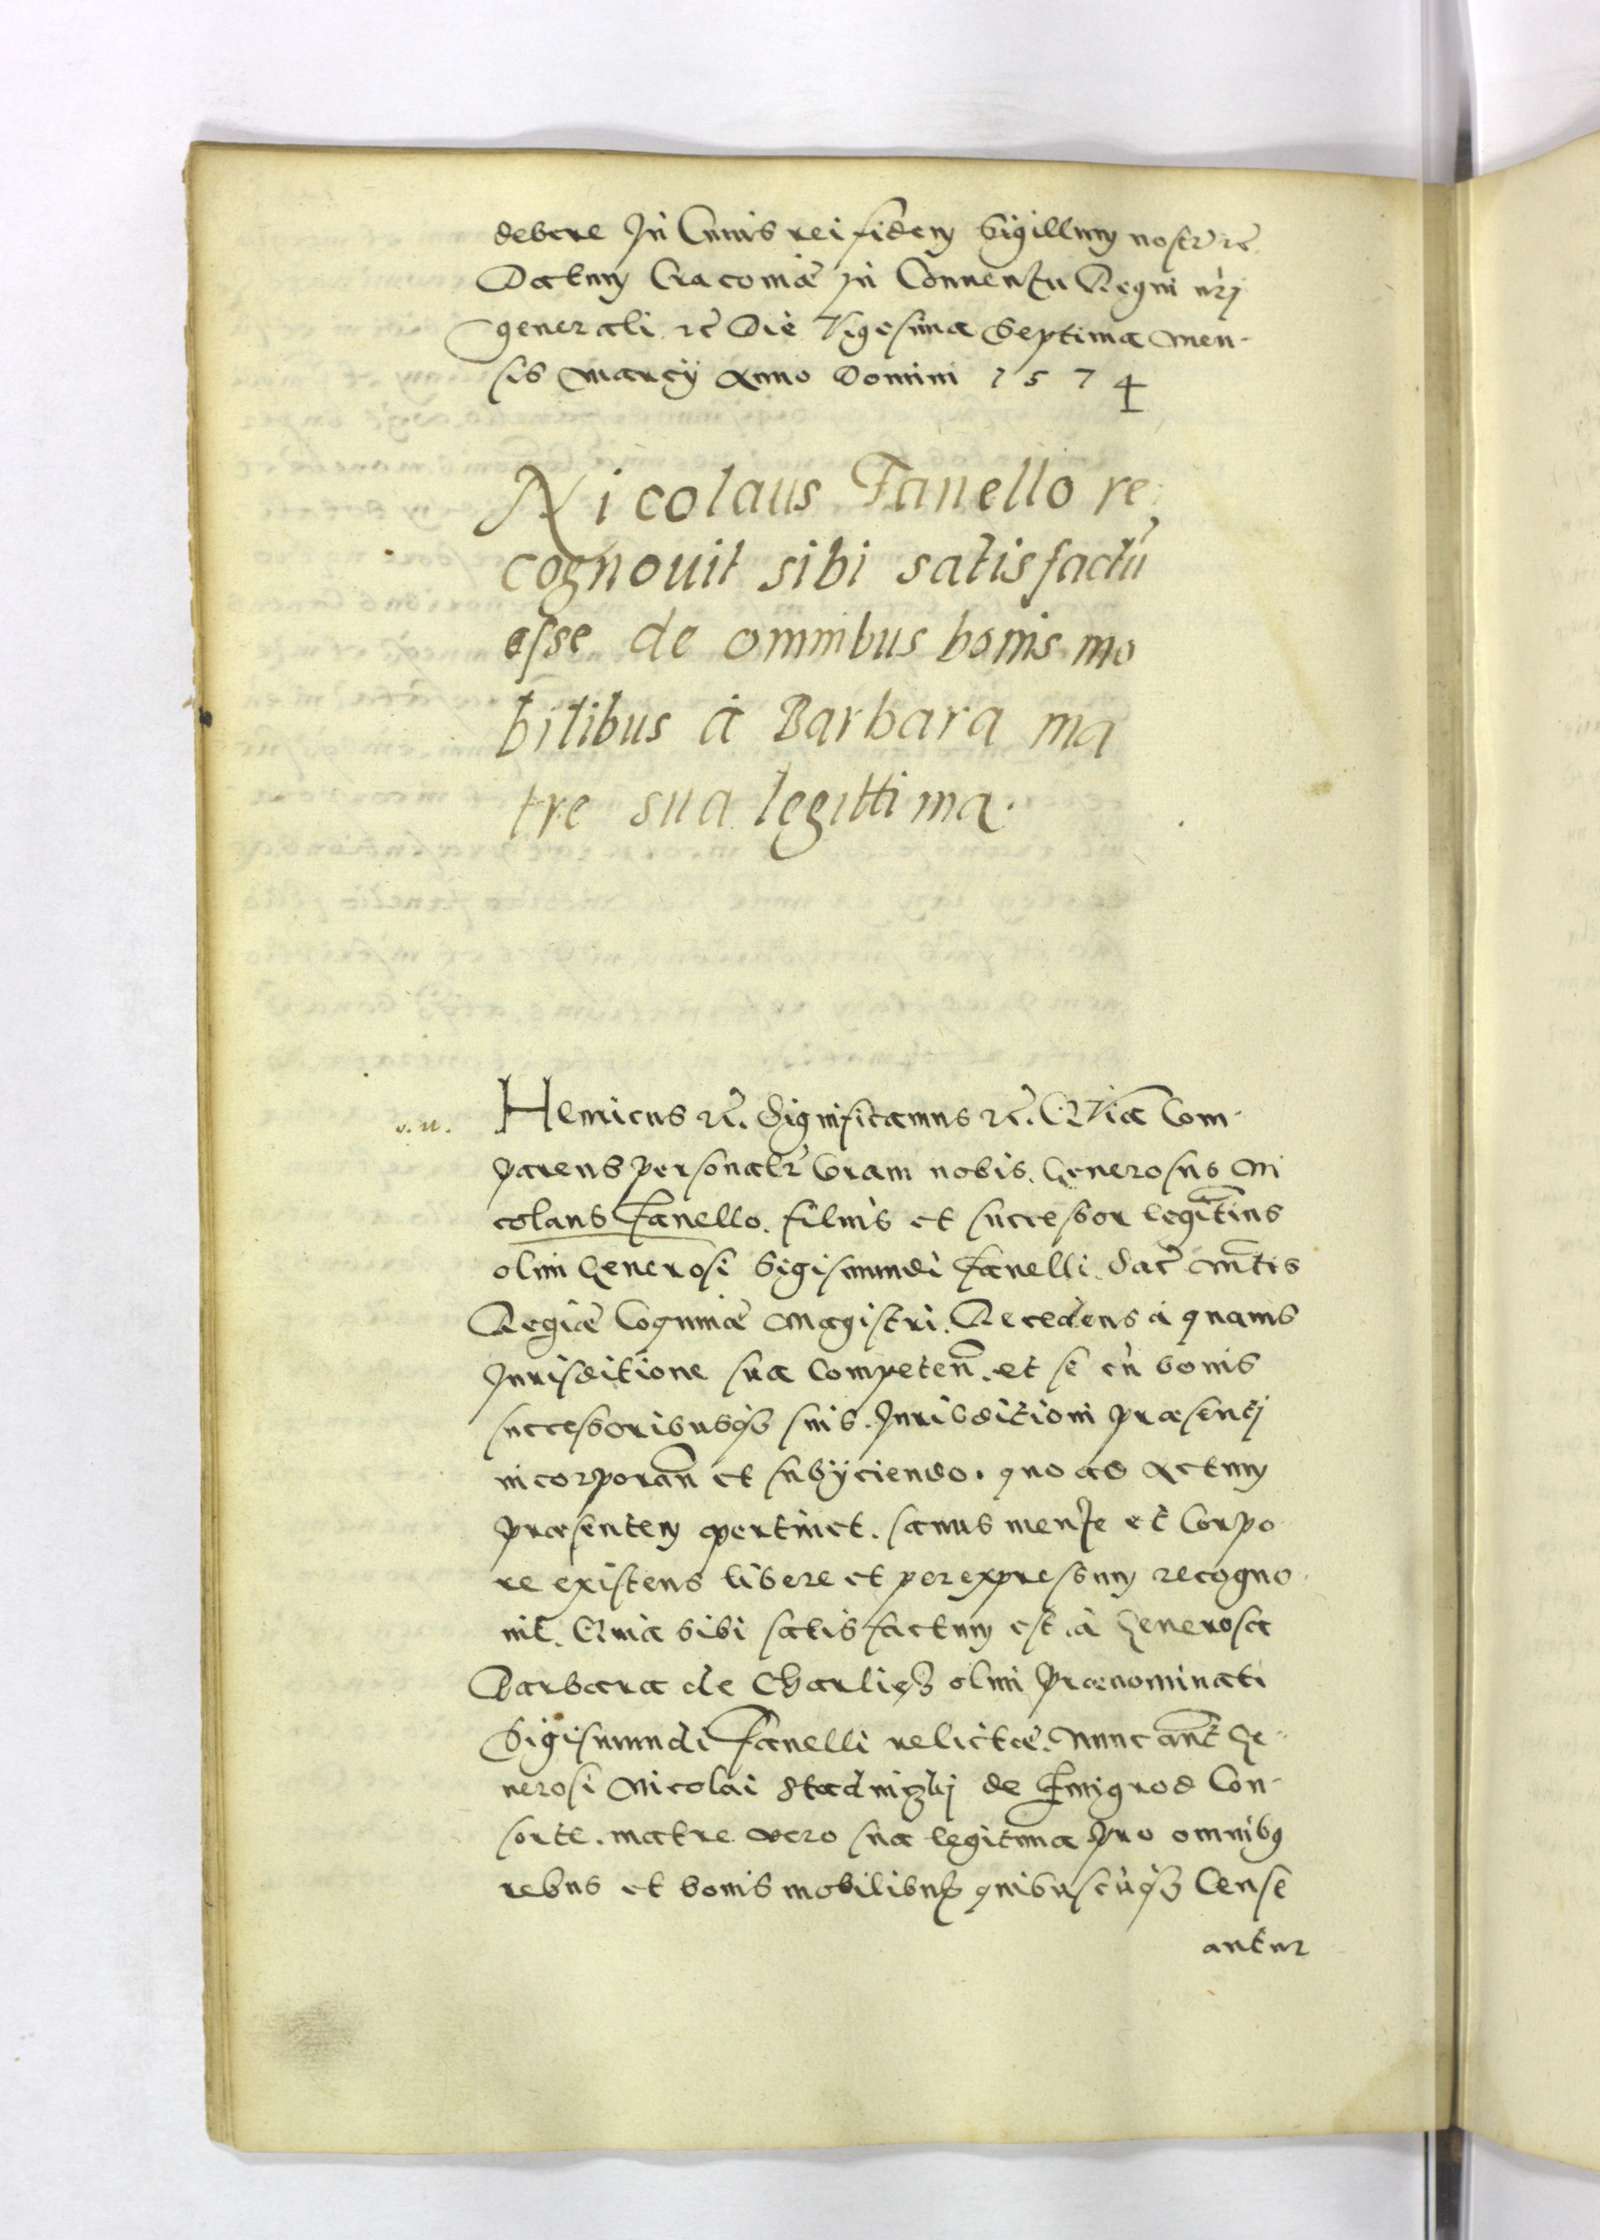 debere In Cuius rei fidem Sigillum nostr̃ etc̃
Datum Cracouiæ in Conuentu Regni nr̃j
generali etc̃ Die Vigesima Septima Men-
sis Marcij Anno Domini 1574
Nicolaus Fanello re,
cognouit sibi satisfactũ
esse de omnibus bonis mo
bilibus à Barbara ma
tre sua legittima.
Henricus etc̃. Significamus etc̃. Quia Com-
parens personalr̃ Coram nobis. Generosus Ni
colaus Fanello. filius et successor legitimus
olim Generosi Sigismundi Fanelli. Sac̃ Mtis
Regiæ Coquinæ Magistri. Recedens à quauis
Jurisditione sua Competeñ. et se cũ bonis
successoribusq3 suis. Jurisditioni præsentj
incorporañ et subijciendo. quo ad Actum
præsentem pertinet. sanus mente et Corpo
re existens libere et per expressum recogno
uit. Quia sibi satisfactum est. à Generosa
Barbara de Charlięz olim Prænominati
Sigismundi Fanelli relictæ. Nunc añt Ge-
nerosi Nicolai Stadniczkj de Zmigrod Con-
sorte. matre vero sua legitima pro omnibq
rebus et bonis mobilibus quibuscũq3 Cense
antur